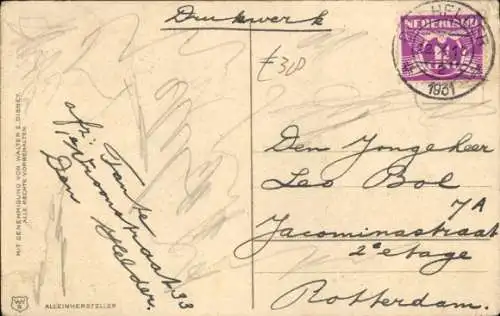 Drukwerk
NEDERLAND
1931
£30
MIT GENEHMIGUNG VON WALTER E. DISNEY
ALLE RECHTE VORBEHALTEN
afz: Tante
Vroomstraat 33
Den Helder.
Den Jongeheer
Leo Bol
7A
Jacominastraat
2e etage
Rotterdam.
W
ALLEINHERSTELLER